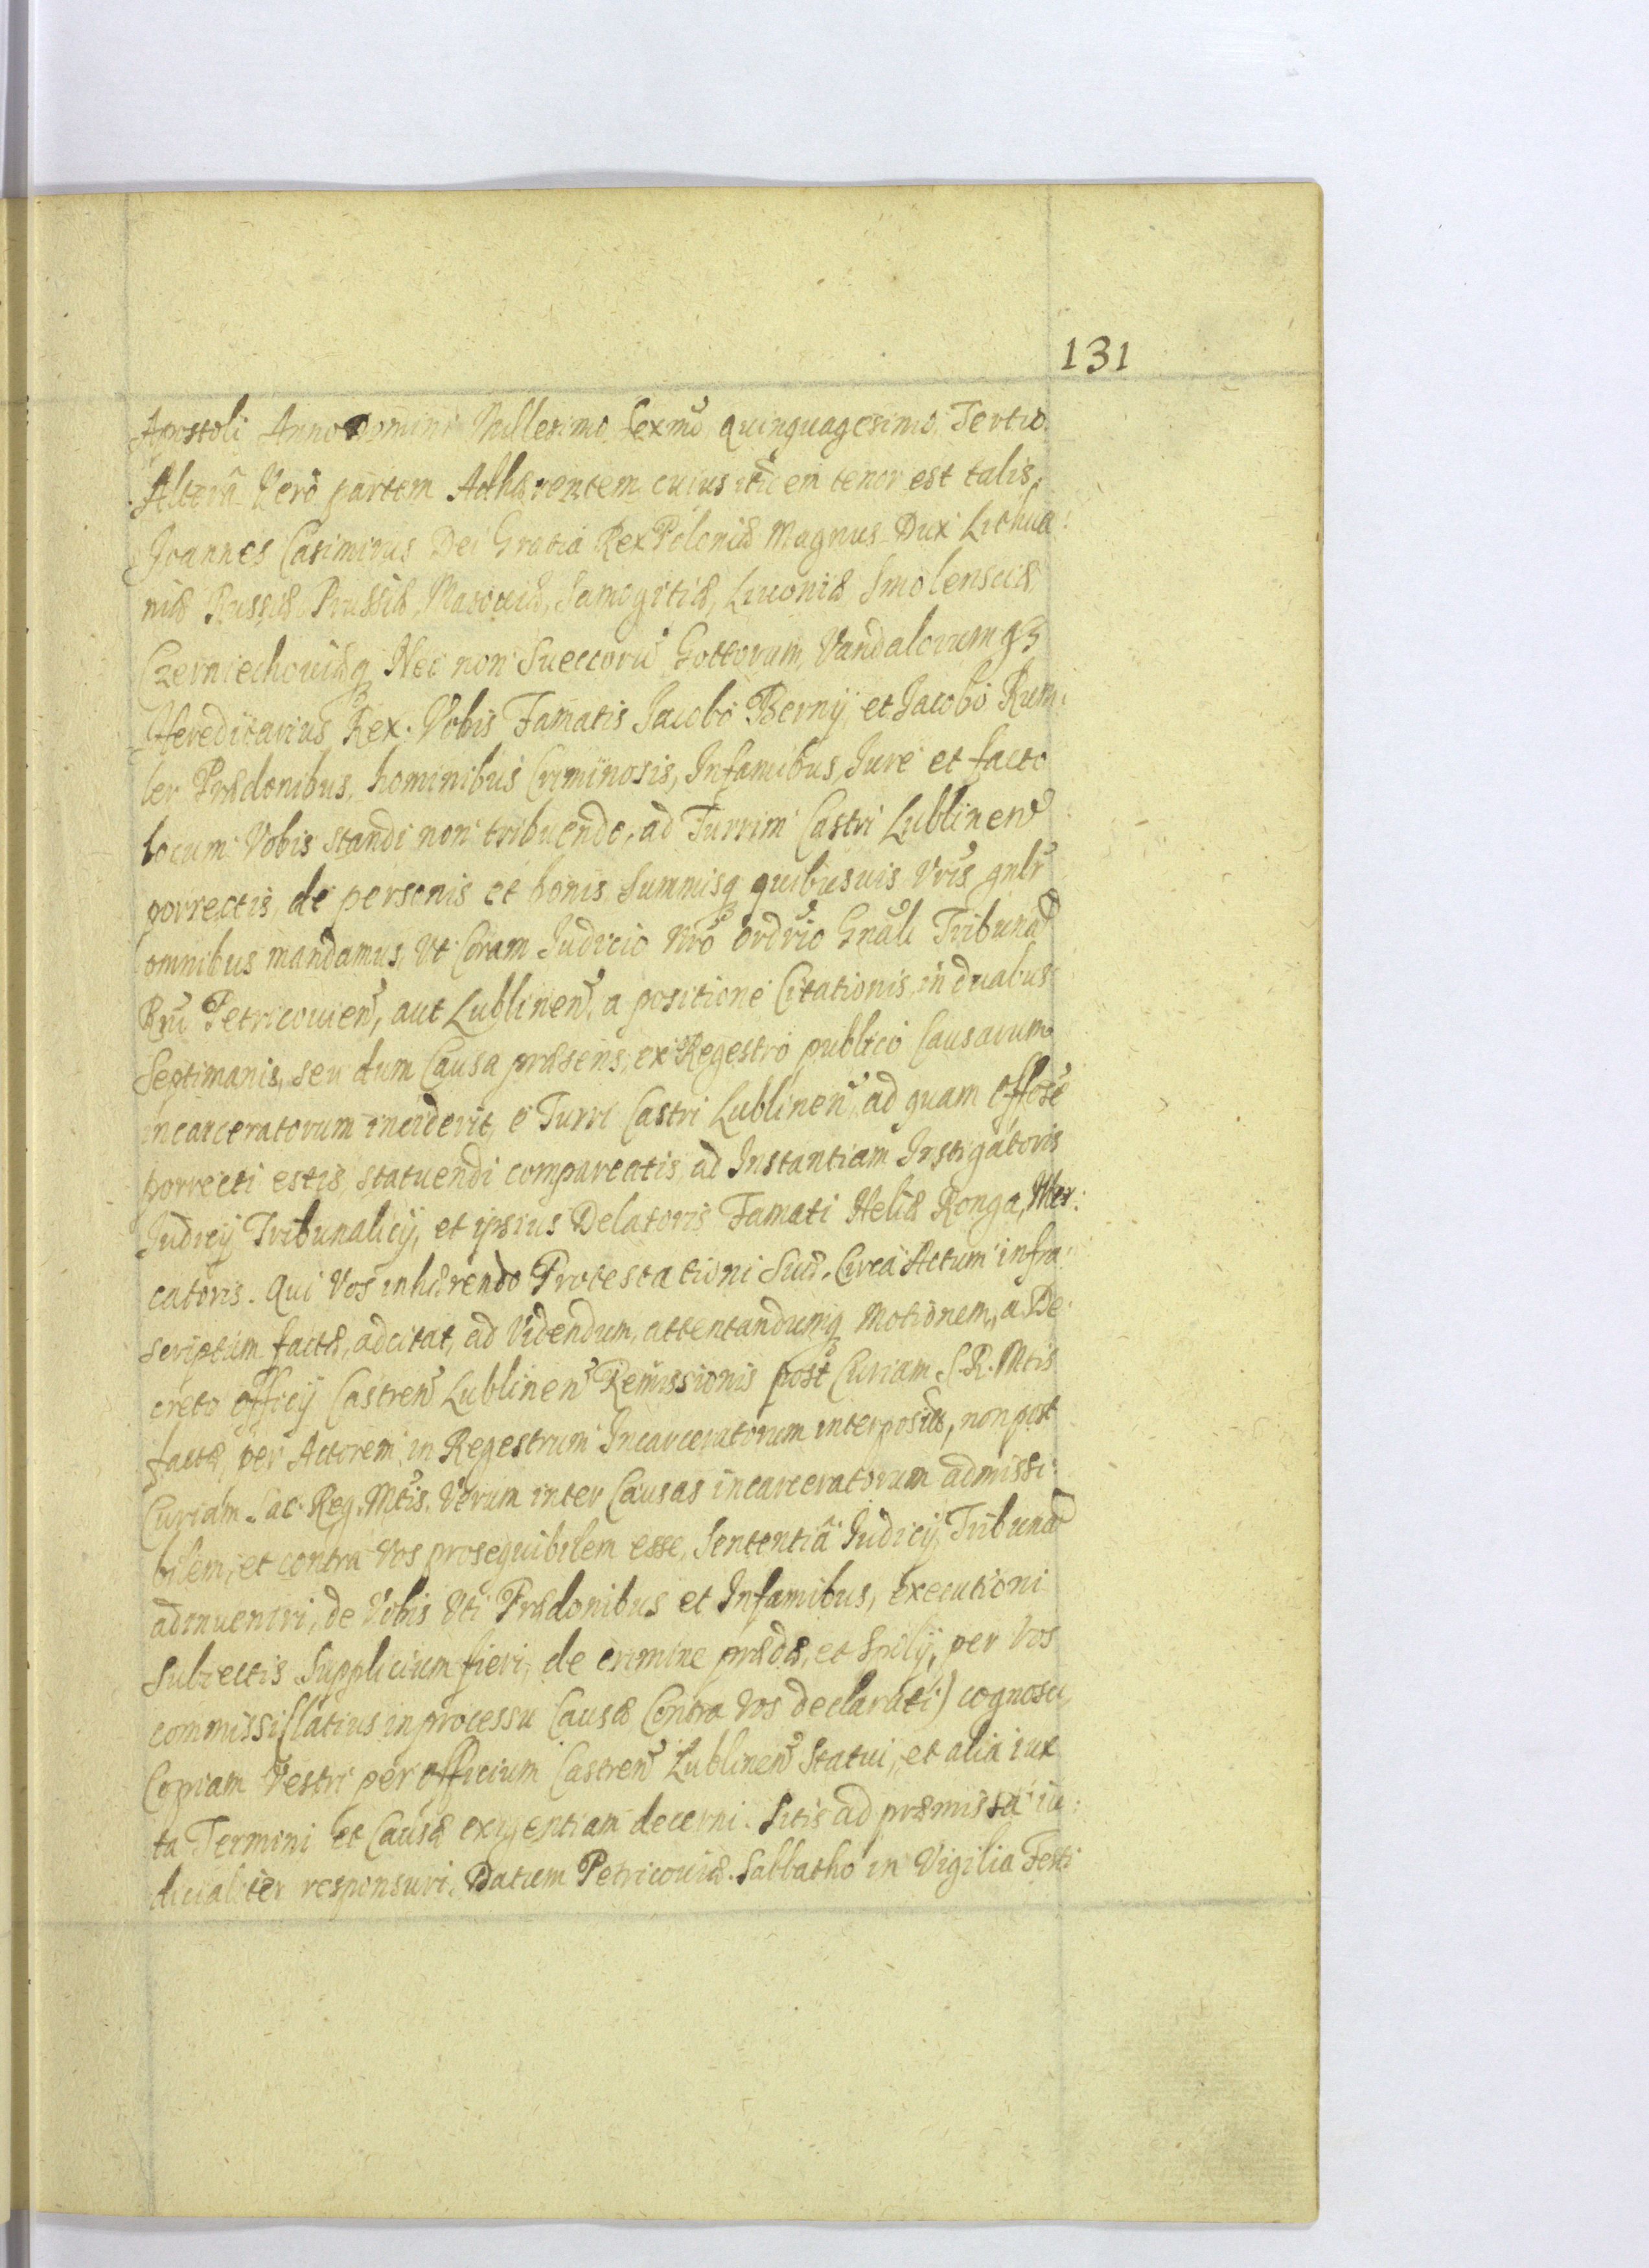 131
Apostoli Anno Domini Millesimo Sexmo Quinquagesimo Tertio
Alterâ Verò partem Adhærentem cuius itidem tenor est talis.
Joannes Casimirus Dei Gratia Rex Poloniæ Magnus Dux Lithua:
niæ Russiæ Prussiæ, Masouiæ, Samogitiæ, Liuoniæ Smolensciæ
Czerniechouiæq3 Nec non Sueccorū Gottorum, Vandalorumq3
Hereditarius Rex. Vobis Famatis Jacobo Berny, et Jacobo Rum:
ler Prædonibus, hominibus Criminosis, Infamibus, Jure et facto
locum Vobis standi non tribuendo, ad Turrim Castri Lublinen̄
porrectis, de personis et bonis Summisq3 quibusuis Vrīs gnlr̄
omnibus mandamus, Vt Coram Judicio Nrō ordrīo Gnāli Tribunal̄
Rgnī Petricouien̄, aut Lublinen̄, a positione Citationis, in duabus
Septimanis, seu dum Causa præsens, ex Regestro publico Causarum
incarceratorum inciderit, e Turri Castri Lublinen̄, ad quam Offosē
porrecti estis, statuendi compareatis, ad Instantiam Instigatoris
Judicij Tribunalicij, et ipsius Delatoris Famati Heliæ Ronga, Mer:
catoris. Qui Vos inhærendo Protestationi Suæ, Circa Actum infra:
scriptum factæ, adcitat, ad Videndum, attentandumq3 Motionem, a De:
creto Officij Castren̄ Lublinen̄ Remissionis post Curiam S. R. Mtis
factæ, per Actorem, in Regestrum Incarceratorum interpositæ, non post
Curiam Sac. Reg. Mtis. Verum inter Causas incarceratorum admissi:
bilem, et contra Vos prosequibilem esse, Sententiâ Judicij Tribunal̄
adinueniri, de Vobis Vti Prædonibus et Infamibus, Executioni
Subiectis Supplicium fieri, de crimine prædæ, et Spolij, per Vos
commissi (latius in processu Causæ Contra Vos declarati) cognosci,
Copiam Vestri per Officium Castren̄ Lublinen̄ Statui, et alia iux
ta Termini et Causæ exigentiam decerni. Sitis ad præmissa iu:
dicialiter responsuri. Datum Petricouiæ. Sabbatho in Vigilia Festi